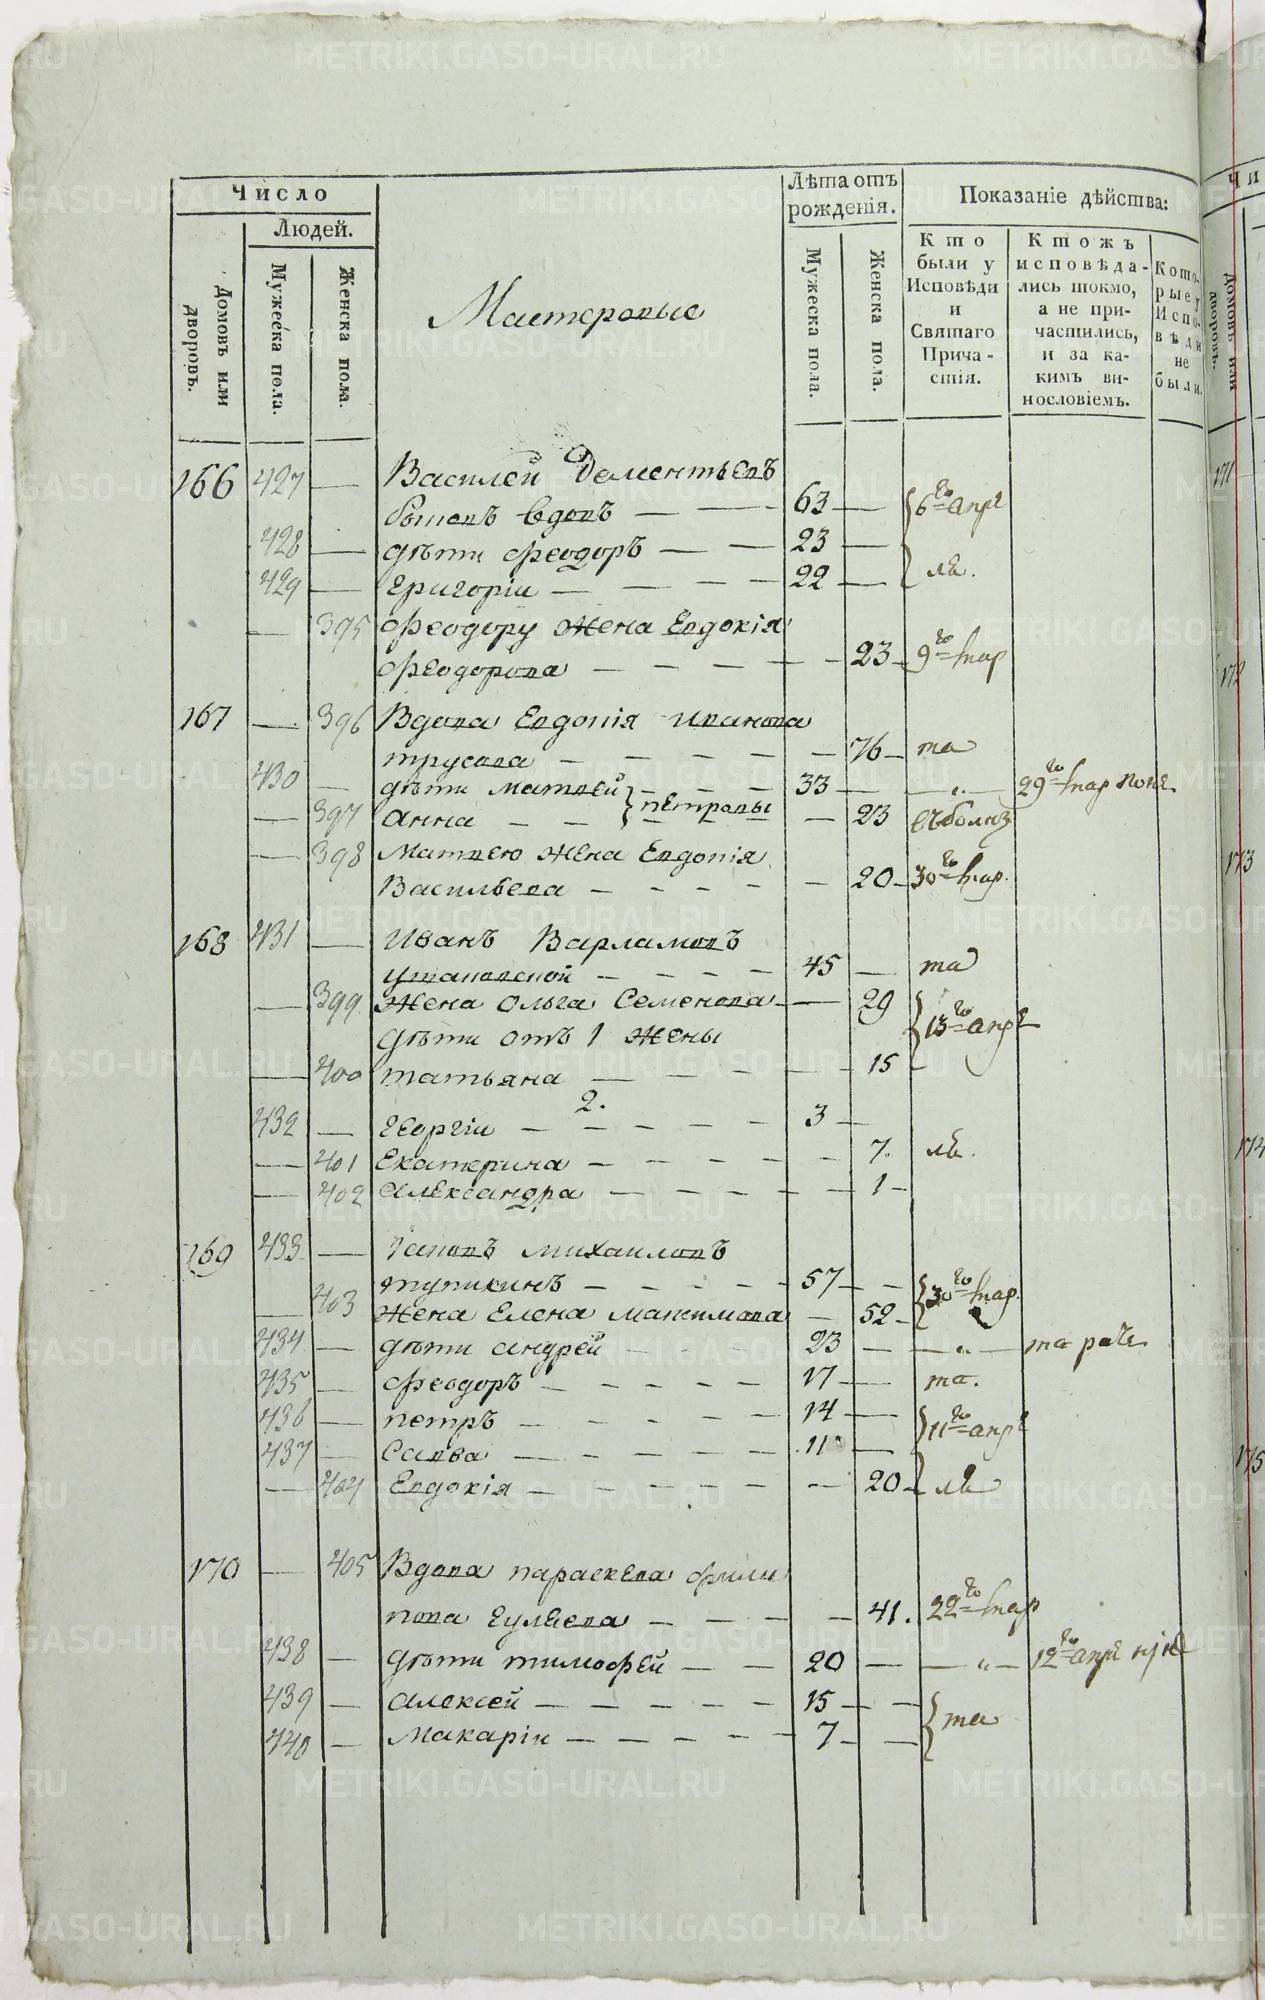 Число
Людей.
Домовъ или дворовъ.
Мужеска пола.
Женска пола.
Мастеровые
Лѣта отъ рожденія.
Мужеска пола.
Женска пола.
Показаніе дѣйства:
Кто были у Исповѣди и Святаго Причастія.
Ктожъ исповѣдались токмо, а не причастились, и за какимъ винословіемъ.
Которые у Исповѣди не были.
166 427 — Василей Дементьевъ
вдовъ — — — 63 — 6го апре
428 — дѣти Феодоръ — — 23 —
429 — Григоріи — — — 22 —
— 395 Феодору жена Евдокія
Феодорова — — — — — 23 9го мар
167 — 396 Вдова Евдокія Иванова
трусова — — — — — 76 та
430 — дѣти Матвей 33 — — „ — 29го мар
— 397 Анна — — петровы — 23
— 398 Матвею жена Евдокія
Васильева — — — — — 20 30го мар.
168 431 — Иванъ Варламовъ
— — — — 45 — та
— 399 жена Ольга Семенова — 29 13го апре
дѣти отъ 1 жены
— 400 татьяна — — — — — 15
2.
432 — Георгіи — — — — — 3 —
— 401 Екатерина — — — — — 7.
— 402 Александра — — — — — 1
169 433 — михаиловъ
тупикинъ — — — — 57 — — 30го мар.
— 403 жена Елена максимова — 52
434 — дѣти андрей — — — 23 — — „ — та
435 — Феодоръ — — — — — 17 — та.
436 — петръ — — — — — 14 — 11го апре
437 — Савва — — — — — 11 —
— 404 Евдокія — — — — — — 20
170 — 405 Вдова параскева фили
пова — — — — 41. 22го мар
438 — дѣти тимофей — — 20 — — „ — 12го апре
439 — алексей — — — — — 15 — —
440 — Макаріи — — — — — 7 — — та
Чи
Домовъ или дворовъ.
171
172
173
174
175
METRIKI.GASO-URAL.RU